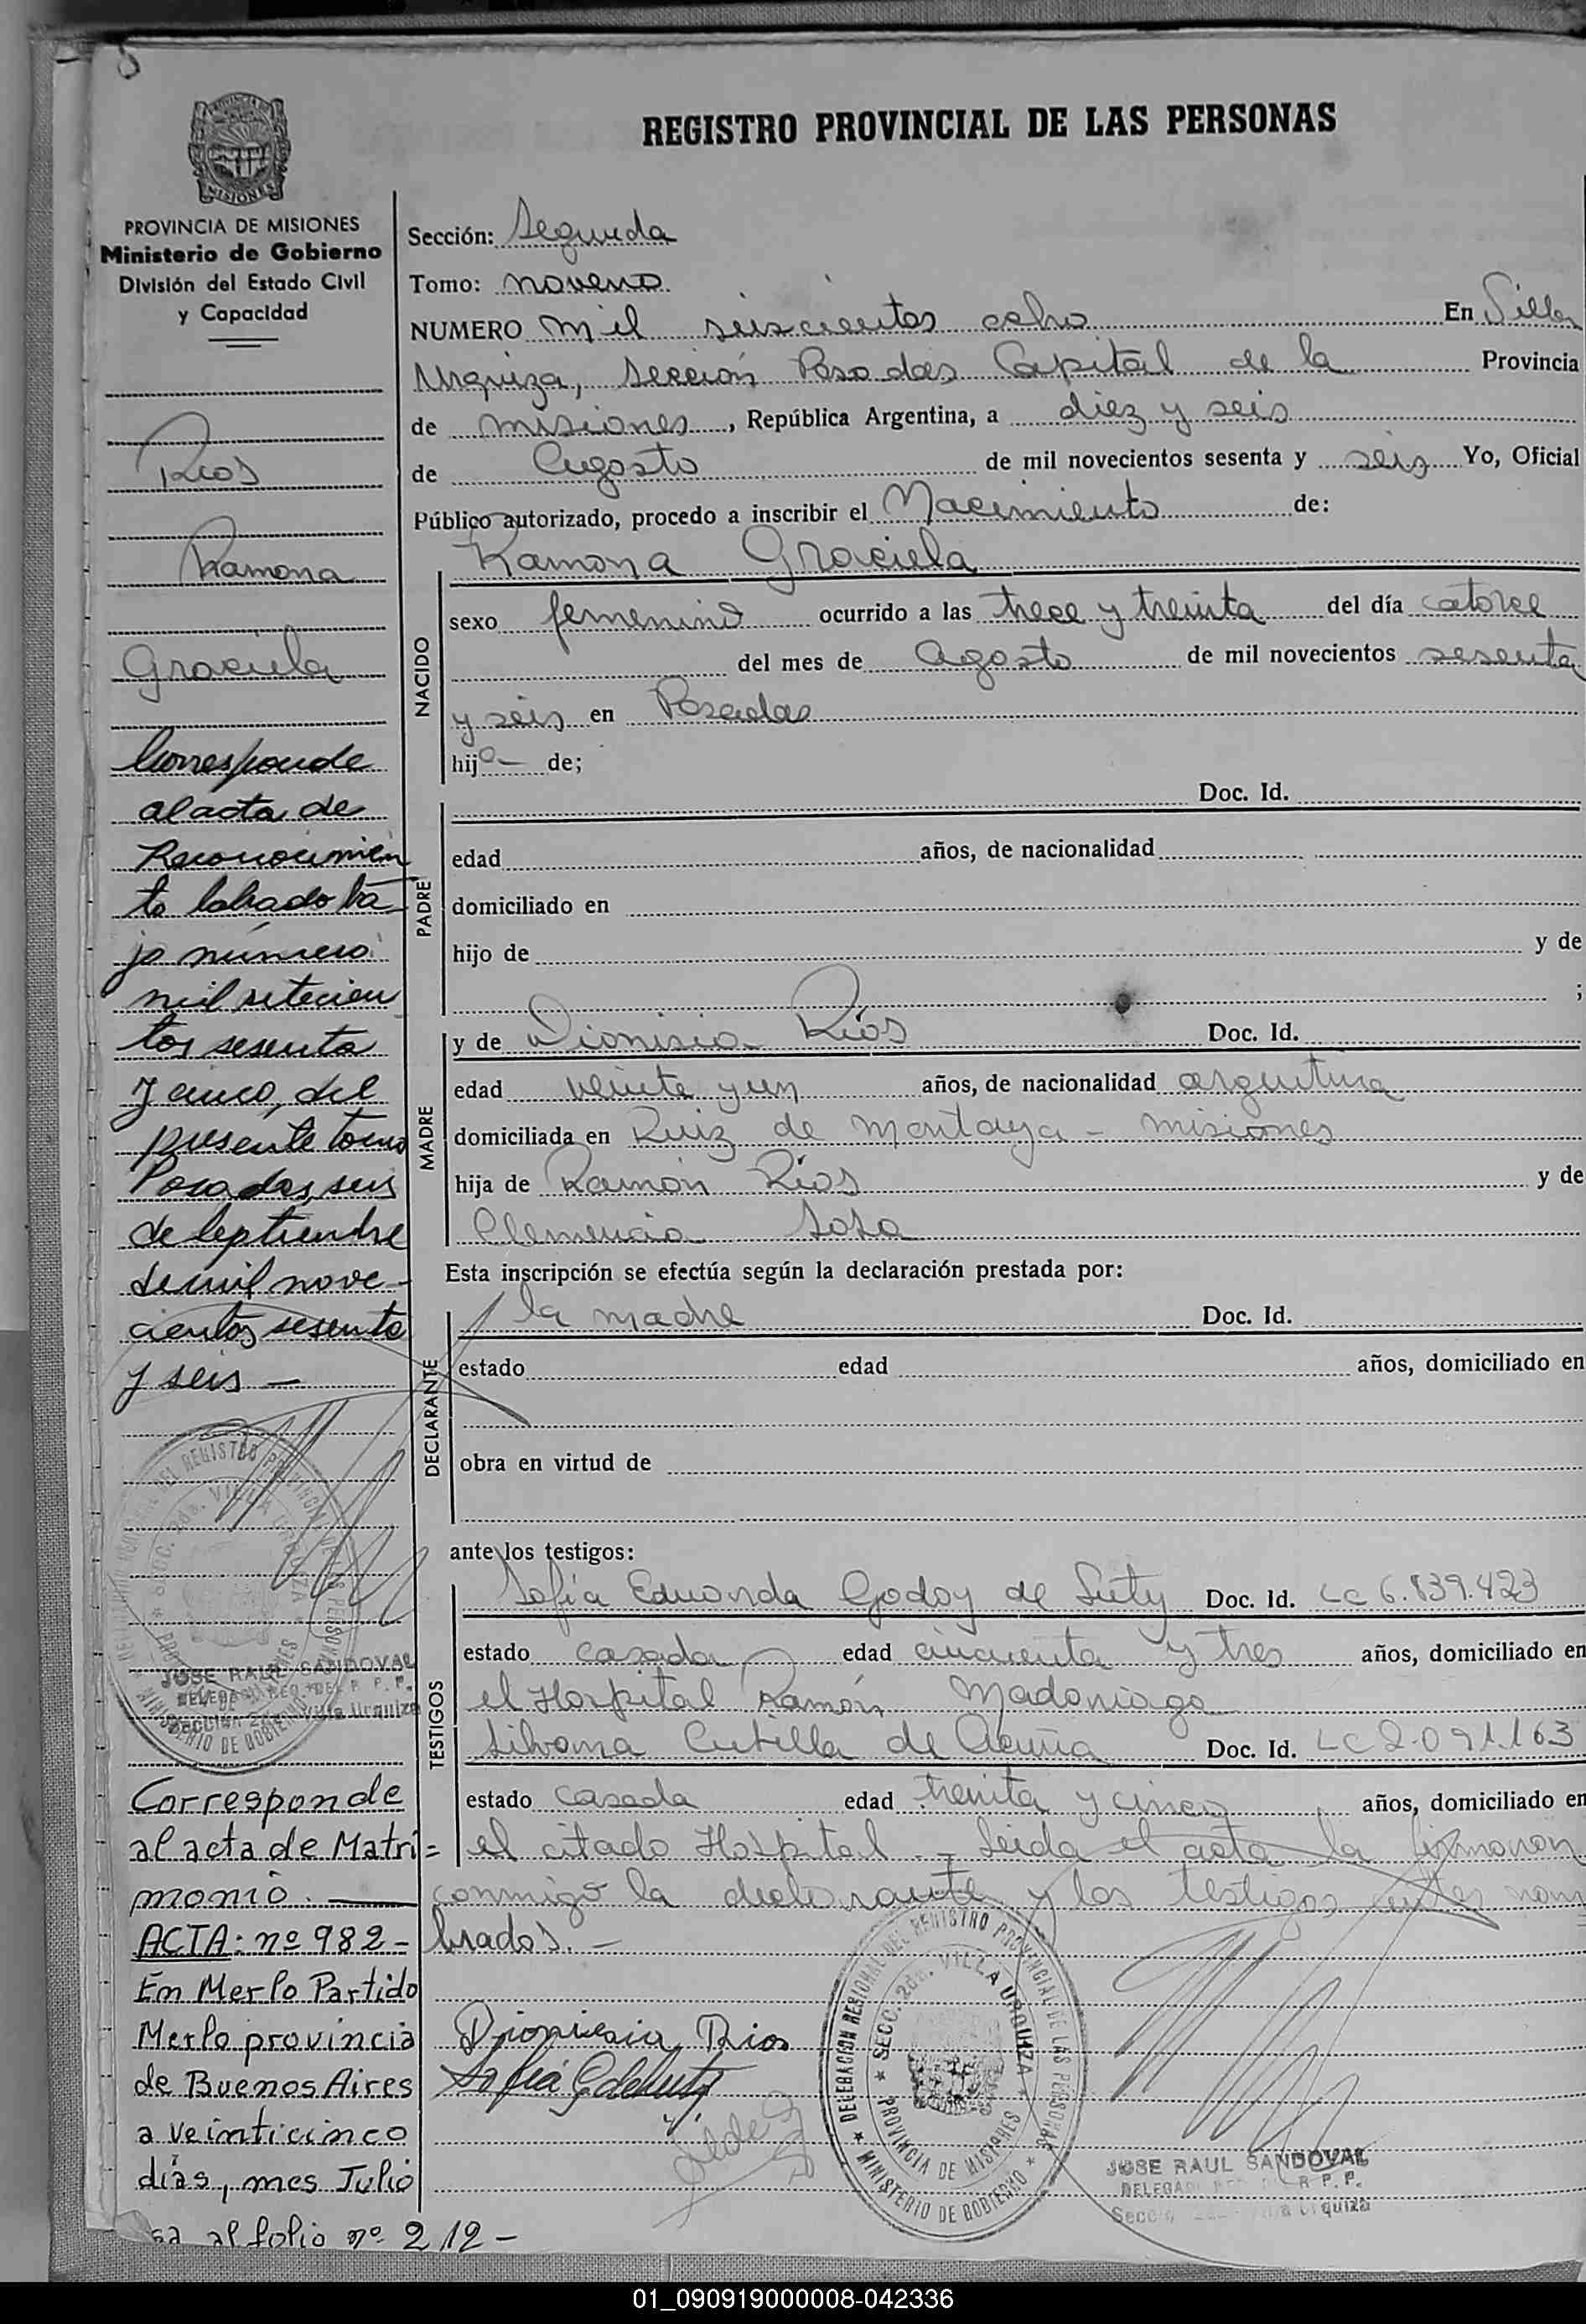 REGISTRO PROVINCIAL DE LAS PERSONAS
MISIONES
PROVINCIA DE MISIONES
Ministerio de Gobierno
División del Estado Civil
y Capacidad
Rios
Ramona
Graciela
Corresponde
al acta de
Reconocimien
to labrado ba
jo número
mil setecien
tos sesenta
y cinco, del
presente tomo
Posadas, seis
de Septiembre
de mil nove-
cientos sesenta
y seis —
JOSE RAUL SANDOVAL
Corresponde
al acta de Matri=
monio. —
ACTA: nº 982 -
En Merlo Partido
Merlo provincia
de Buenos Aires
a veinticinco
días, mes Julio
sa al folio nº 212 -
Sección: Segunda
Tomo: noveno
NUMERO mil seiscientos ocho En Villa
Urquiza, Sección Posadas Capital de la Provincia
de misiones, República Argentina, a diez y seis
de Agosto de mil novecientos sesenta y seis Yo, Oficial
Público autorizado, procedo a inscribir el Nacimiento de:
Ramona Graciela
NACIDO
sexo femenino ocurrido a las trece y treinta del día catorce
del mes de Agosto de mil novecientos sesenta
y seis en Posadas
hija — de;
PADRE
Doc. Id.
edad años, de nacionalidad
domiciliado en
hijo de y de
;
MADRE
y de Dionisia Ríos Doc. Id.
edad veinte y un años, de nacionalidad argentina
domiciliada en Ruiz de Montoya - misiones
hija de Ramón Ríos y de
Clemencia Sosa
Esta inscripción se efectúa según la declaración prestada por:
DECLARANTE
la madre Doc. Id.
estado edad años, domiciliado en
obra en virtud de
ante los testigos:
TESTIGOS
Sofía Eduarda Godoy de Doc. Id. LC 6.839.423
estado casada edad cincuenta y tres años, domiciliado en
el Hospital Ramón Madariaga
Silvana de Acuña Doc. Id. LC 2.091.163
estado casada edad treinta y cinco años, domiciliado en
el citado Hospital.- Leida el acta la firmaron
conmigo la declarante y los testigos antes nom
brados.-
Dionisia Rios
DELEGACION REGIONAL DEL REGISTRO PROVINCIAL DE LAS PERSONAS
SECC. 2da. VILLA URQUIZA
PROVINCIA DE MISIONES
MINISTERIO DE GOBIERNO
JOSE RAUL SANDOVAL
01_090919000008-042336